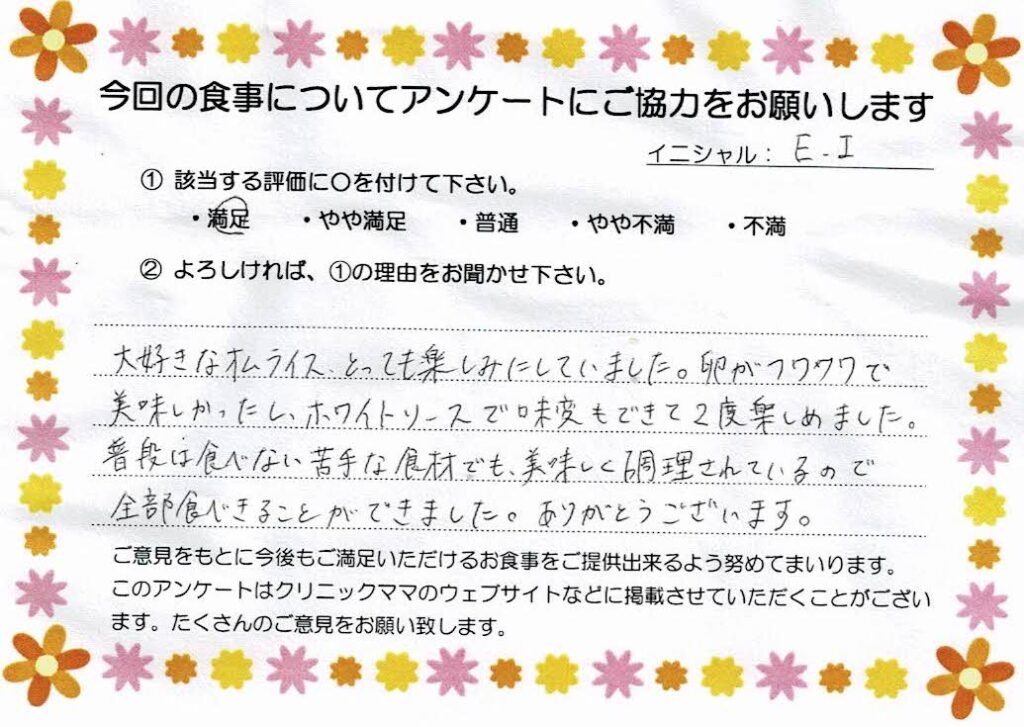 今回の食事についてアンケートにご協力をお願いします
イニシャル： E.I
① 該当する評価に〇を付けて下さい。
・満足 ・やや満足 ・普通 ・やや不満 ・不満
② よろしければ、①の理由をお聞かせ下さい。
大好きなオムライス、とっても楽しみにしていました。卵がフワフワで
美味しかったし、ホワイトソースで味変もできて2度楽しめました。
普段は食べない苦手な食材でも、美味しく調理されているので
全部食べきることができました。ありがとうございます。
ご意見をもとに今後もご満足いただけるお食事をご提供出来るよう努めてまいります。
このアンケートはクリニックママのウェブサイトなどに掲載させていただくことがござい
ます。たくさんのご意見をお願い致します。